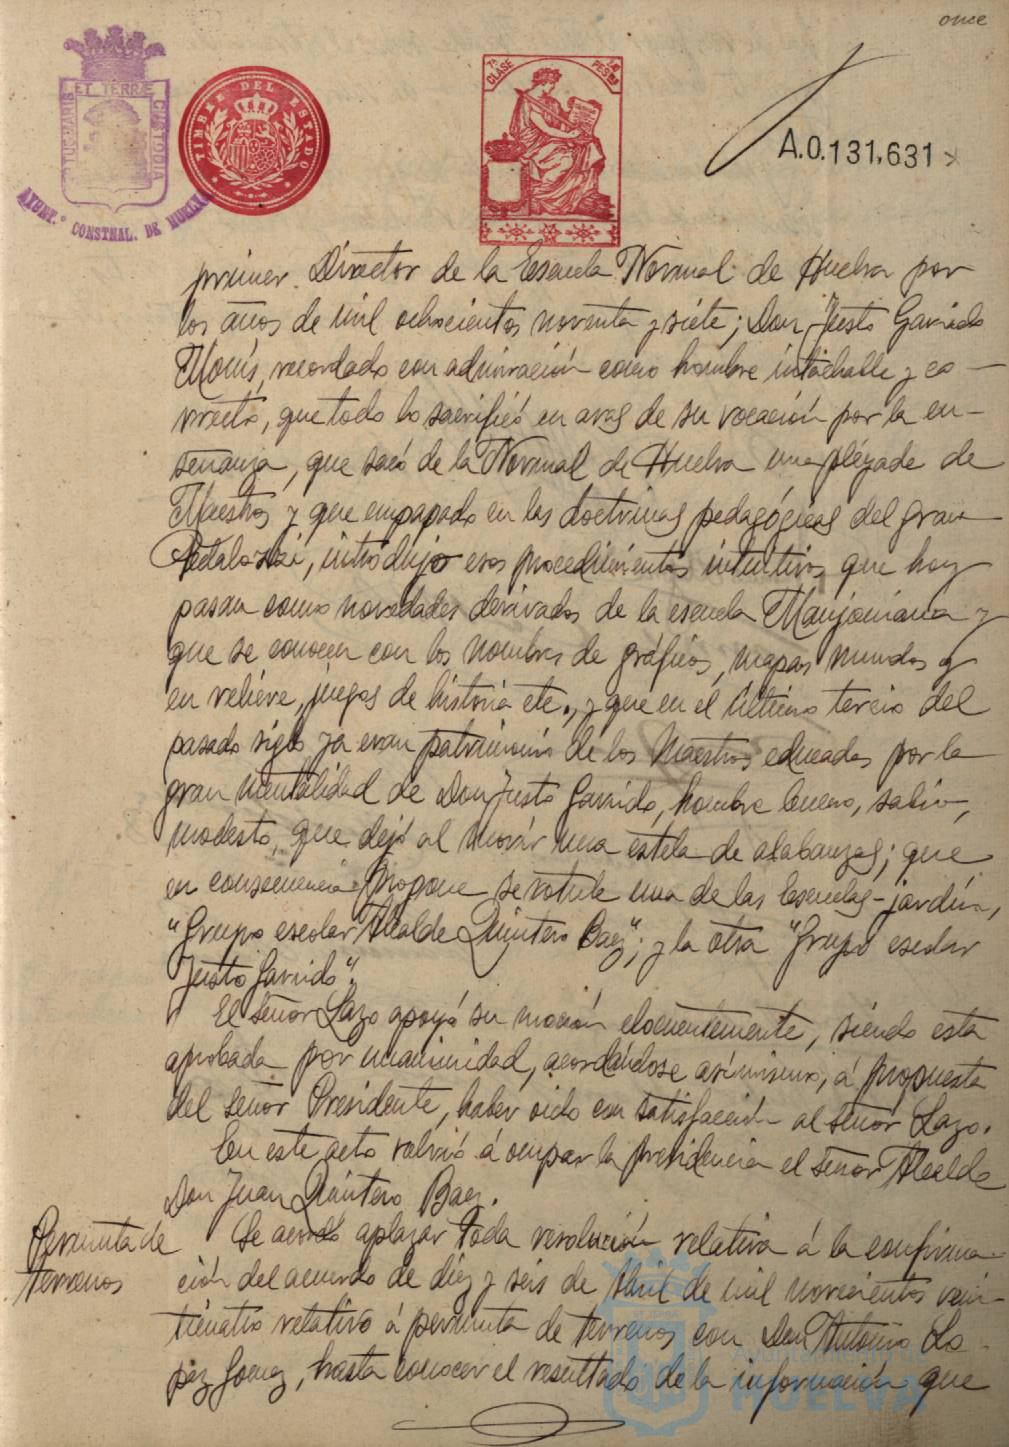 once
ET TERRAE
PORTUS MARIS
CUSTODIA
AYUNT.º CONSTNAL. DE HUELVA
TIMBRE DEL ESTADO
7ª CLASE
PESETAS
A.0.131,631
primer Director de la Escuela Normal de Huelva por
los años de mil ochocientos noventa y siete; Don Justo Garrido
Mouis, recordado con admiración como hombre intachable y co-
rrecto, que todo lo sacrificó en aras de su vocación por la en-
señanza, que sacó de la Normal de Huelva una pléyade de
Maestros y que empapado en las doctrinas pedagógicas del gran
Pestalozzi, introdujo esos procedimientos intuitivos que hoy
pasan como novedades derivados de la escuela Manjoniana y
que se conocen con los nombres de gráficos, mapas mundos y
en relieve, juegos de historia etc., y que en el último tercio del
pasado siglo ya eran patrimonio de los Maestros educados por la
gran mentalidad de Don Justo Garrido, hombre bueno, sabio,
modesto, que dejó al morir una estela de alabanzas; que
en consecuencia propone se rotule una de las Escuelas-jardín,
"Grupo escolar Alcalde Quintero Baez"; y la otra "Grupo escolar
Justo Garrido".
El Señor Lazo apoyó su moción elocuentemente, siendo esta
aprobada por unanimidad, acordándose asimismo, á propuesta
del Señor Presidente, haber oido con satisfacción al señor Lazo.
En este acto volvió á ocupar la presidencia el Señor Alcalde
Don Juan Quintero Baez.
Permuta de
terrenos
Se acordó aplazar toda resolución relativa á la confirma-
ción del acuerdo de diez y seis de Abril de mil novecientos vein-
ticuatro relativo á permuta de terrenos con Don Antonio Lo-
pez Gomez, hasta conocer el resultado de la información que
Ayuntamiento de
HUELVA